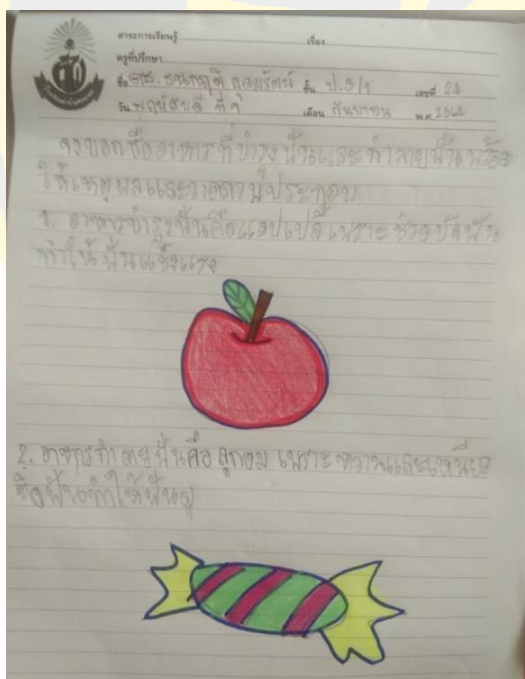 สาระการเรียนรู้ เรื่อง
ครูที่ปรึกษา
ชื่อ ด.ช. ธนกฤติ ชั้น ป.3/1 เลขที่ 24
วัน พฤหัสบดี ที่ เดือน กันยายน พ.ศ.
จงบอกชื่ออาหารที่บำรุงฟันและทำลายฟันพร้อม
ให้เหตุผลและวาดภาพประกอบ
1. อาหารบำรุงฟันคือแอปเปิ้ลเพราะช่วยขัดฟัน
ทำให้ฟันแข็งแรง
2. อาหารทำลายฟันคือลูกอม เพราะหวานและเหนียว
ติดฟันทำให้ฟันผุ